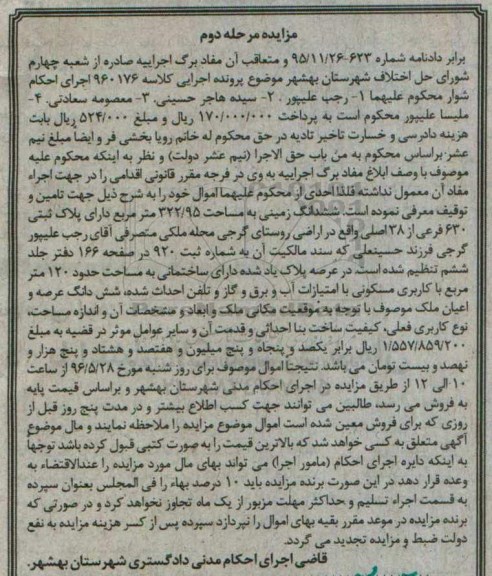 مزایده مرحله دوم
برابر دادنامه شماره ۶۲۳-۹۵/۱۱/۲۶ و متعاقب آن مفاد برگ اجراییه صادره از شعبه چهارم
شورای حل اختلاف شهرستان بهشهر موضوع پرونده اجرایی کلاسه ۹۶۰۱۷۶ اجرای احکام
شوار محکوم علیهما ۱- رجب علیپور، ۲- سیده هاجر حسینی، ۳- معصومه سعادتی، ۴-
ملیسا علیپور محکوم است به پرداخت ۱۷۰/۰۰۰/۰۰۰ ریال و مبلغ ۵۲۴/۰۰۰ ریال بابت
هزینه دادرسی و خسارت تاخیر تادیه در حق محکوم له خانم رویا بخشی فر و ایضا مبلغ نیم
عشر براساس محکوم به من باب حق الاجرا (نیم عشر دولت) و نظر به اینکه محکوم علیه
موصوف با وصف ابلاغ مفاد برگ اجراییه به وی در فرجه مقرر قانونی اقدامی را در جهت اجراء
مفاد آن معمول نداشته فلذا احدی از محکوم علیهما اموال خود را به شرح ذیل جهت تامین و
توقیف معرفی نموده است. ششدانگ زمینی به مساحت ۳۲۲/۹۵ متر مربع دارای پلاک ثبتی
۶۳۰ فرعی از ۳۸ اصلی واقع در اراضی روستای گرجی محله ملکی متصرفی آقای رجب علیپور
گرجی فرزند حسینعلی که سند مالکیت آن به شماره ثبت ۹۲۰ در صفحه ۱۶۶ دفتر جلد
ششم تنظیم شده است. در عرصه پلاک یاد شده دارای ساختمانی به مساحت حدود ۱۲۰ متر
مربع با کاربری مسکونی با امتیازات آب و برق و گاز و تلفن احداث شده، شش دانگ عرصه و
اعیان ملک موصوف با توجه به موقعیت مکانی ملک و ابعاد و مشخصات آن و اندازه مساحت،
نوع کاربری فعلی، کیفیت ساخت بنا احداثی و قدمت آن و سایر عوامل موثر در قضیه به مبلغ
۱/۵۵۷/۸۵۹/۲۰۰ ریال برابر یکصد و پنجاه و پنج میلیون و هفتصد و هشتاد و پنج هزار و
نهصد و بیست تومان می باشد. نتیجتاً اموال موصوف برای روز شنبه مورخ ۹۶/۵/۲۸ از ساعت
۱۰ الی ۱۲ از طریق مزایده در اجرای احکام مدنی شهرستان بهشهر و براساس قیمت پایه
به فروش می رسد، طالبین می توانند جهت کسب اطلاع بیشتر و در مدت پنج روز قبل از
روزی که برای فروش معین شده است اموال موضوع مزایده را ملاحظه نمایند و مال موضوع
آگهی متعلق به کسی خواهد شد که بالاترین قیمت را به صورت کتبی قبول کرده باشد توجهاً
به اینکه دایره اجرای احکام (مامور اجرا) می تواند بهای مال مورد مزایده را عندالاقتضاء به
وعده قرار دهد در این صورت برنده مزایده باید ۱۰ درصد بهاء را فی المجلس بعنوان سپرده
به قسمت اجراء تسلیم و حداکثر مهلت مزبور از یک ماه تجاوز نخواهد کرد و در صورتی که
برنده مزایده در موعد مقرر بقیه بهای اموال را نپردازد سپرده پس از کسر هزینه مزایده به نفع
دولت ضبط و مزایده تجدید می گردد.
قاضی اجرای احکام مدنی دادگستری شهرستان بهشهر.